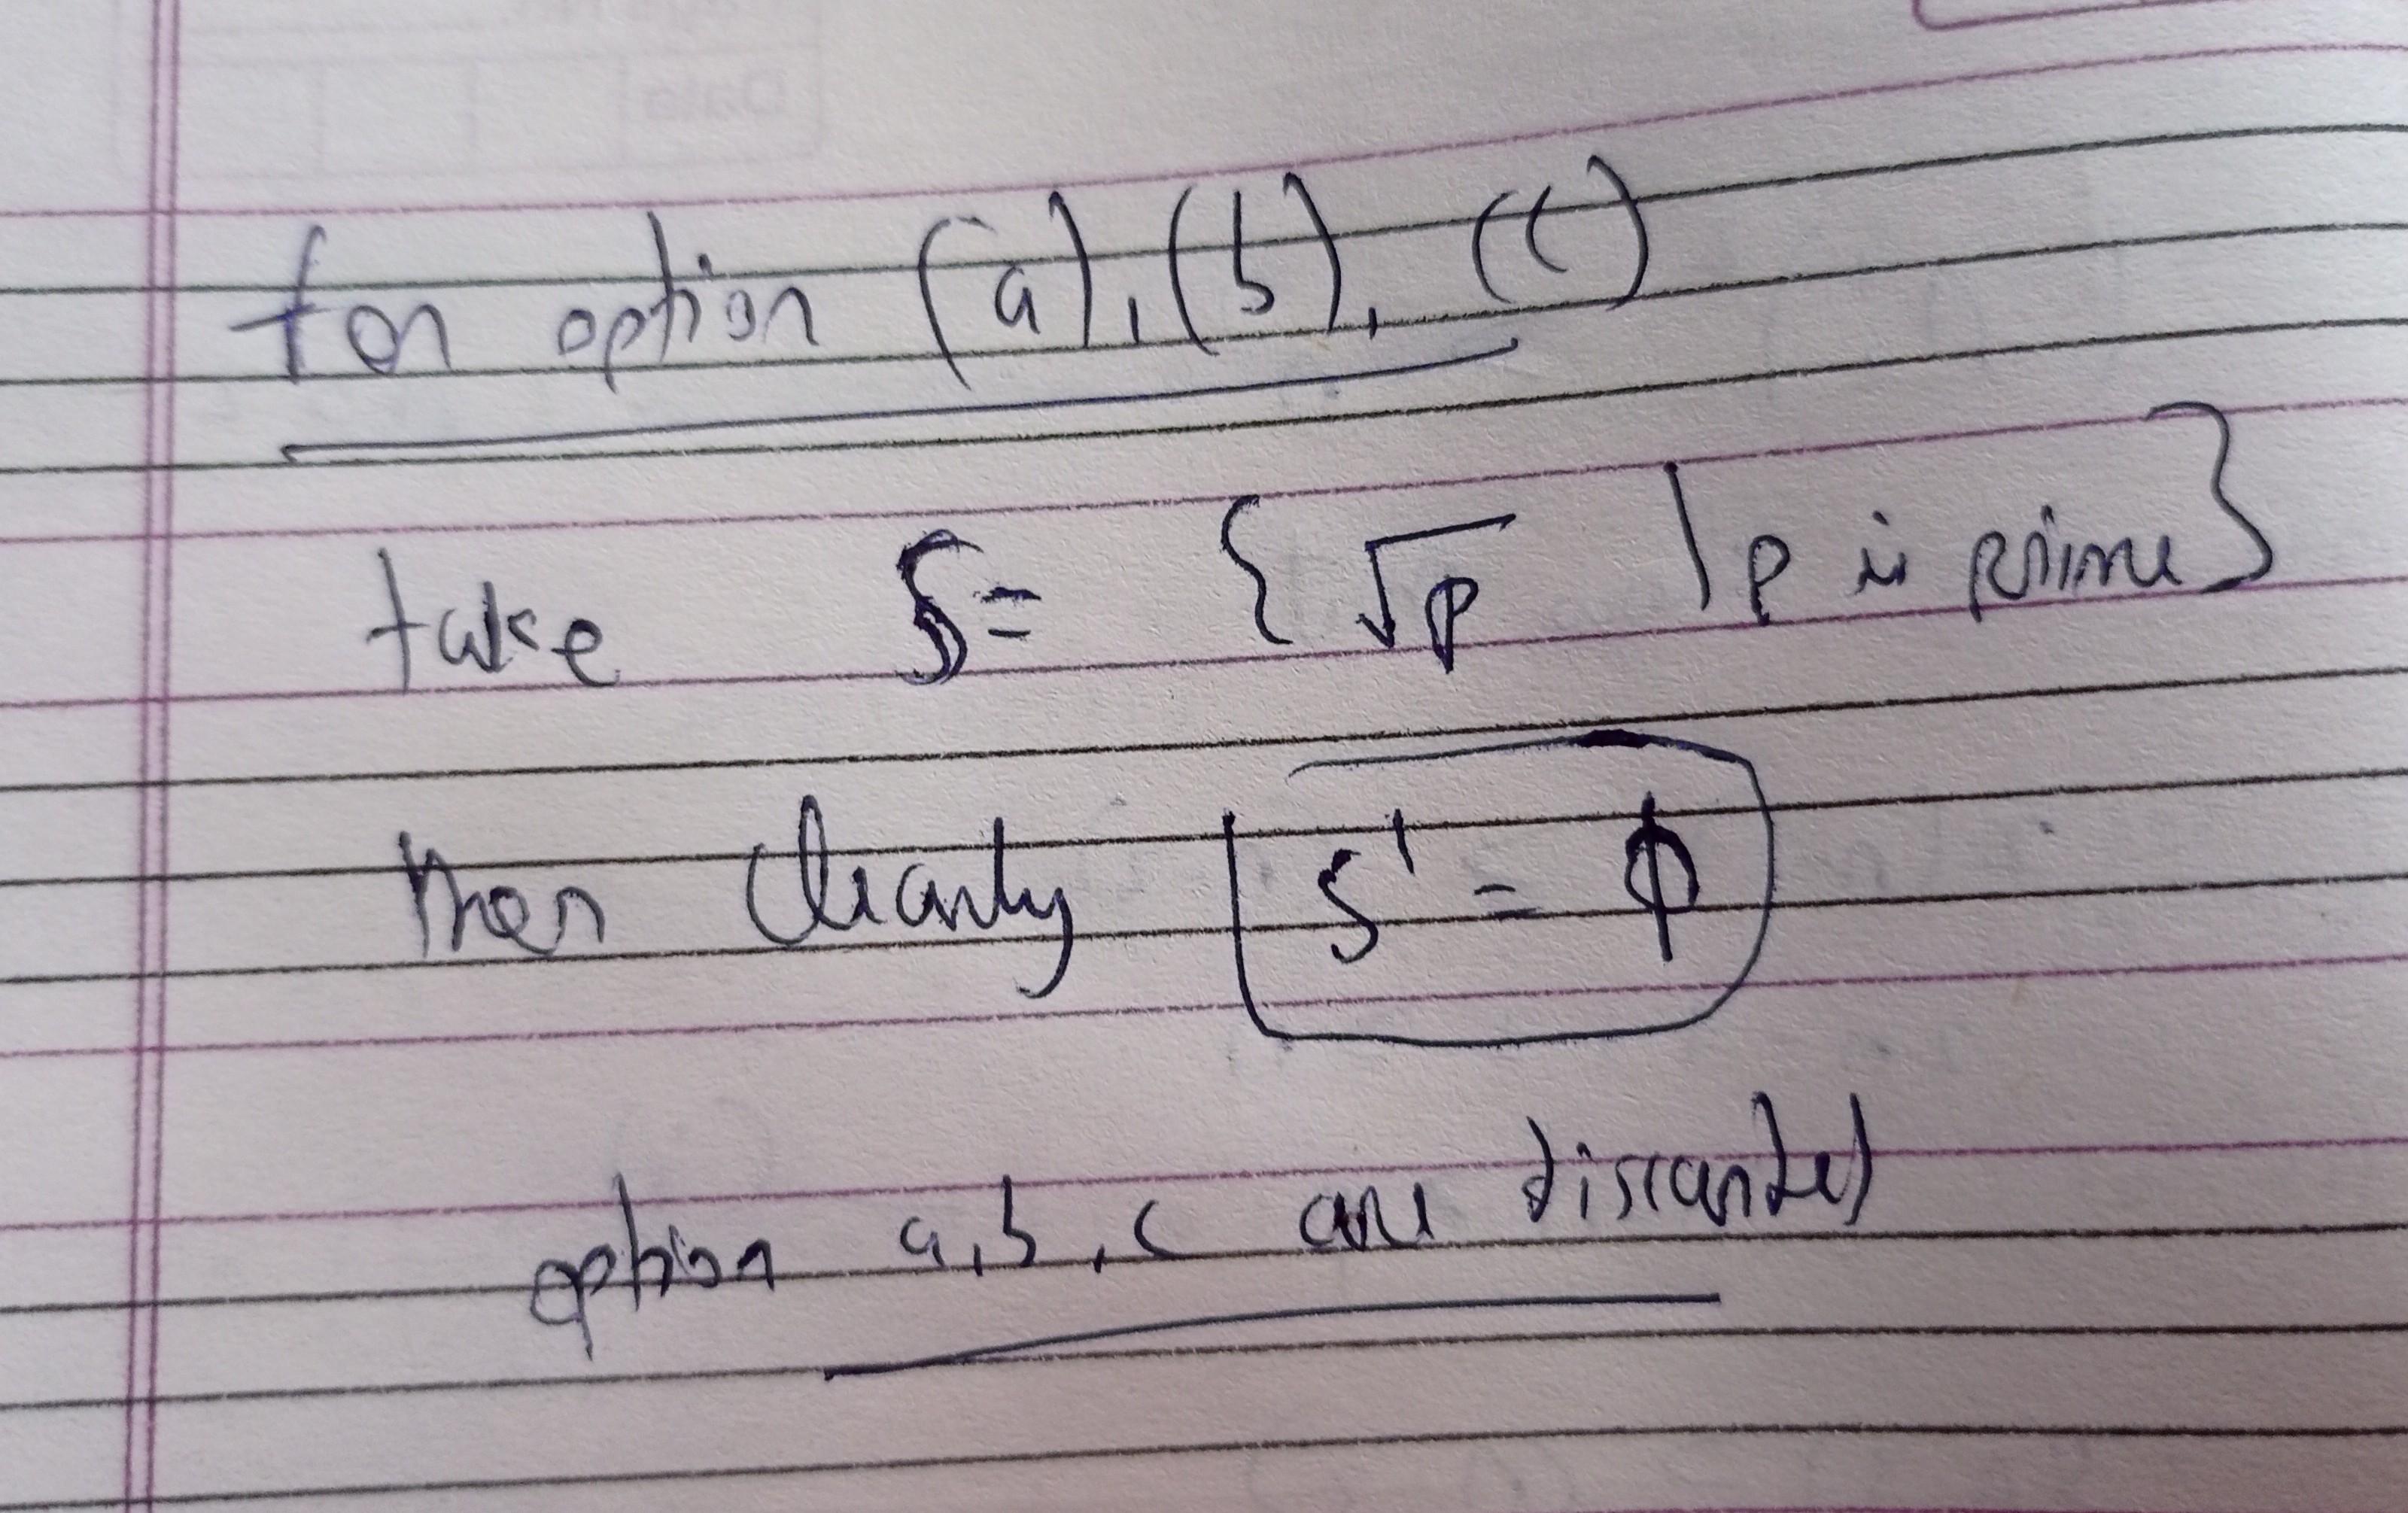 for option (a), (b), (c)
take S = { √p | p is prime }
then clearly S' = ϕ
option a, b, c are discarded